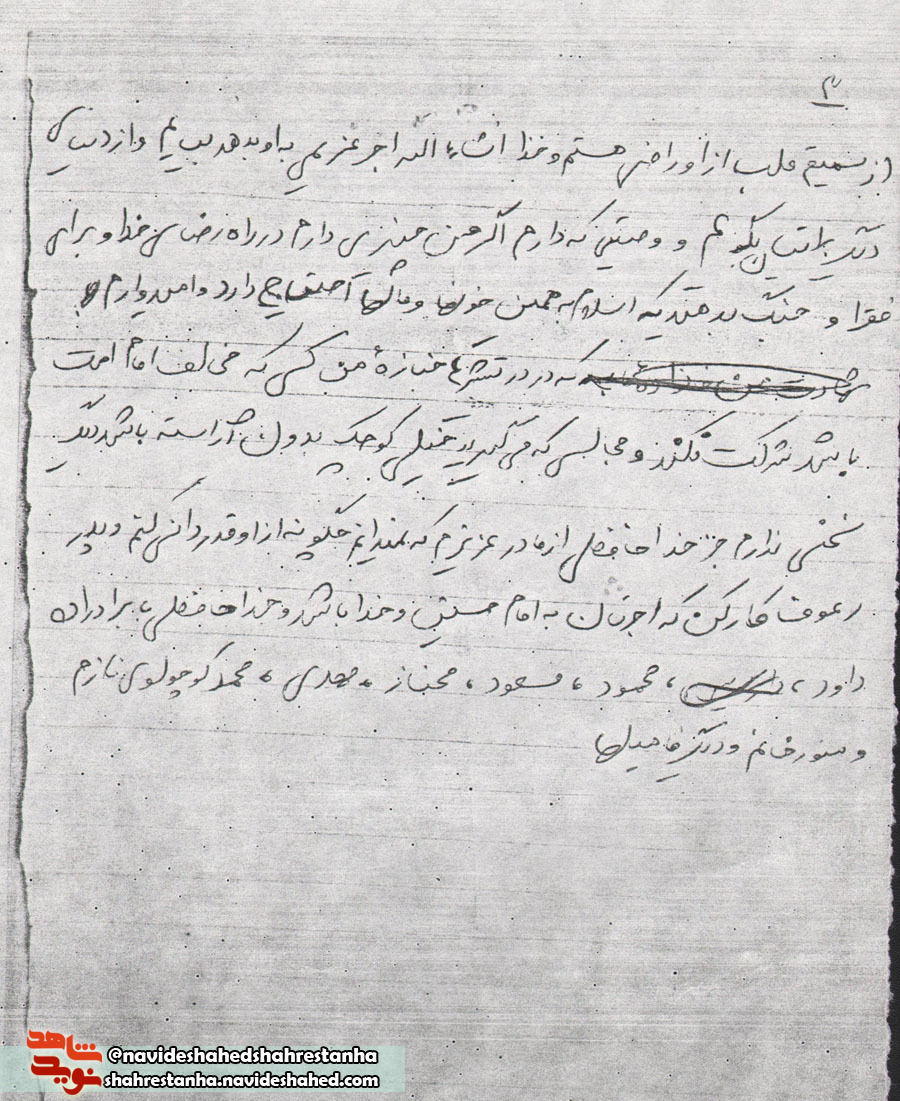 ۳
از صمیم قلب از او راضی هستم و خدا انشاء الله اجر عزیمی به او بدهد و از دنیای
دیگر برایتان بگویم و وصیتی که دارم اگر من چیزی دارم در راه رضای خدا و برای
فقرا و جنگ بدهید که اسلام به همین خونها و مالها احتیاج دارد و امیدوارم
که در تشییع جنازهٔ من کسی که مخالف امام امت
باشد شرکت نکند و مجالسی که می‌گیرید خیلی کوچک بدون آراسته باشد دیگر
سخنی ندارم جز خدا حافظی از مادر عزیزم که نمیدانم چگونه از او قدردانی کنم و پدر
رعوف که اجرتان به امام حسین و خدا باشد و خدا حافظی با برادران
داود ، محمود ، مسعود ، مهناز ، مهدی ، محمد کوچولوی نازم
و منور خانم و دیگر فامیلها
شاهد
نوید
@navideshahedshahrestanha
shahrestanha.navideshahed.com